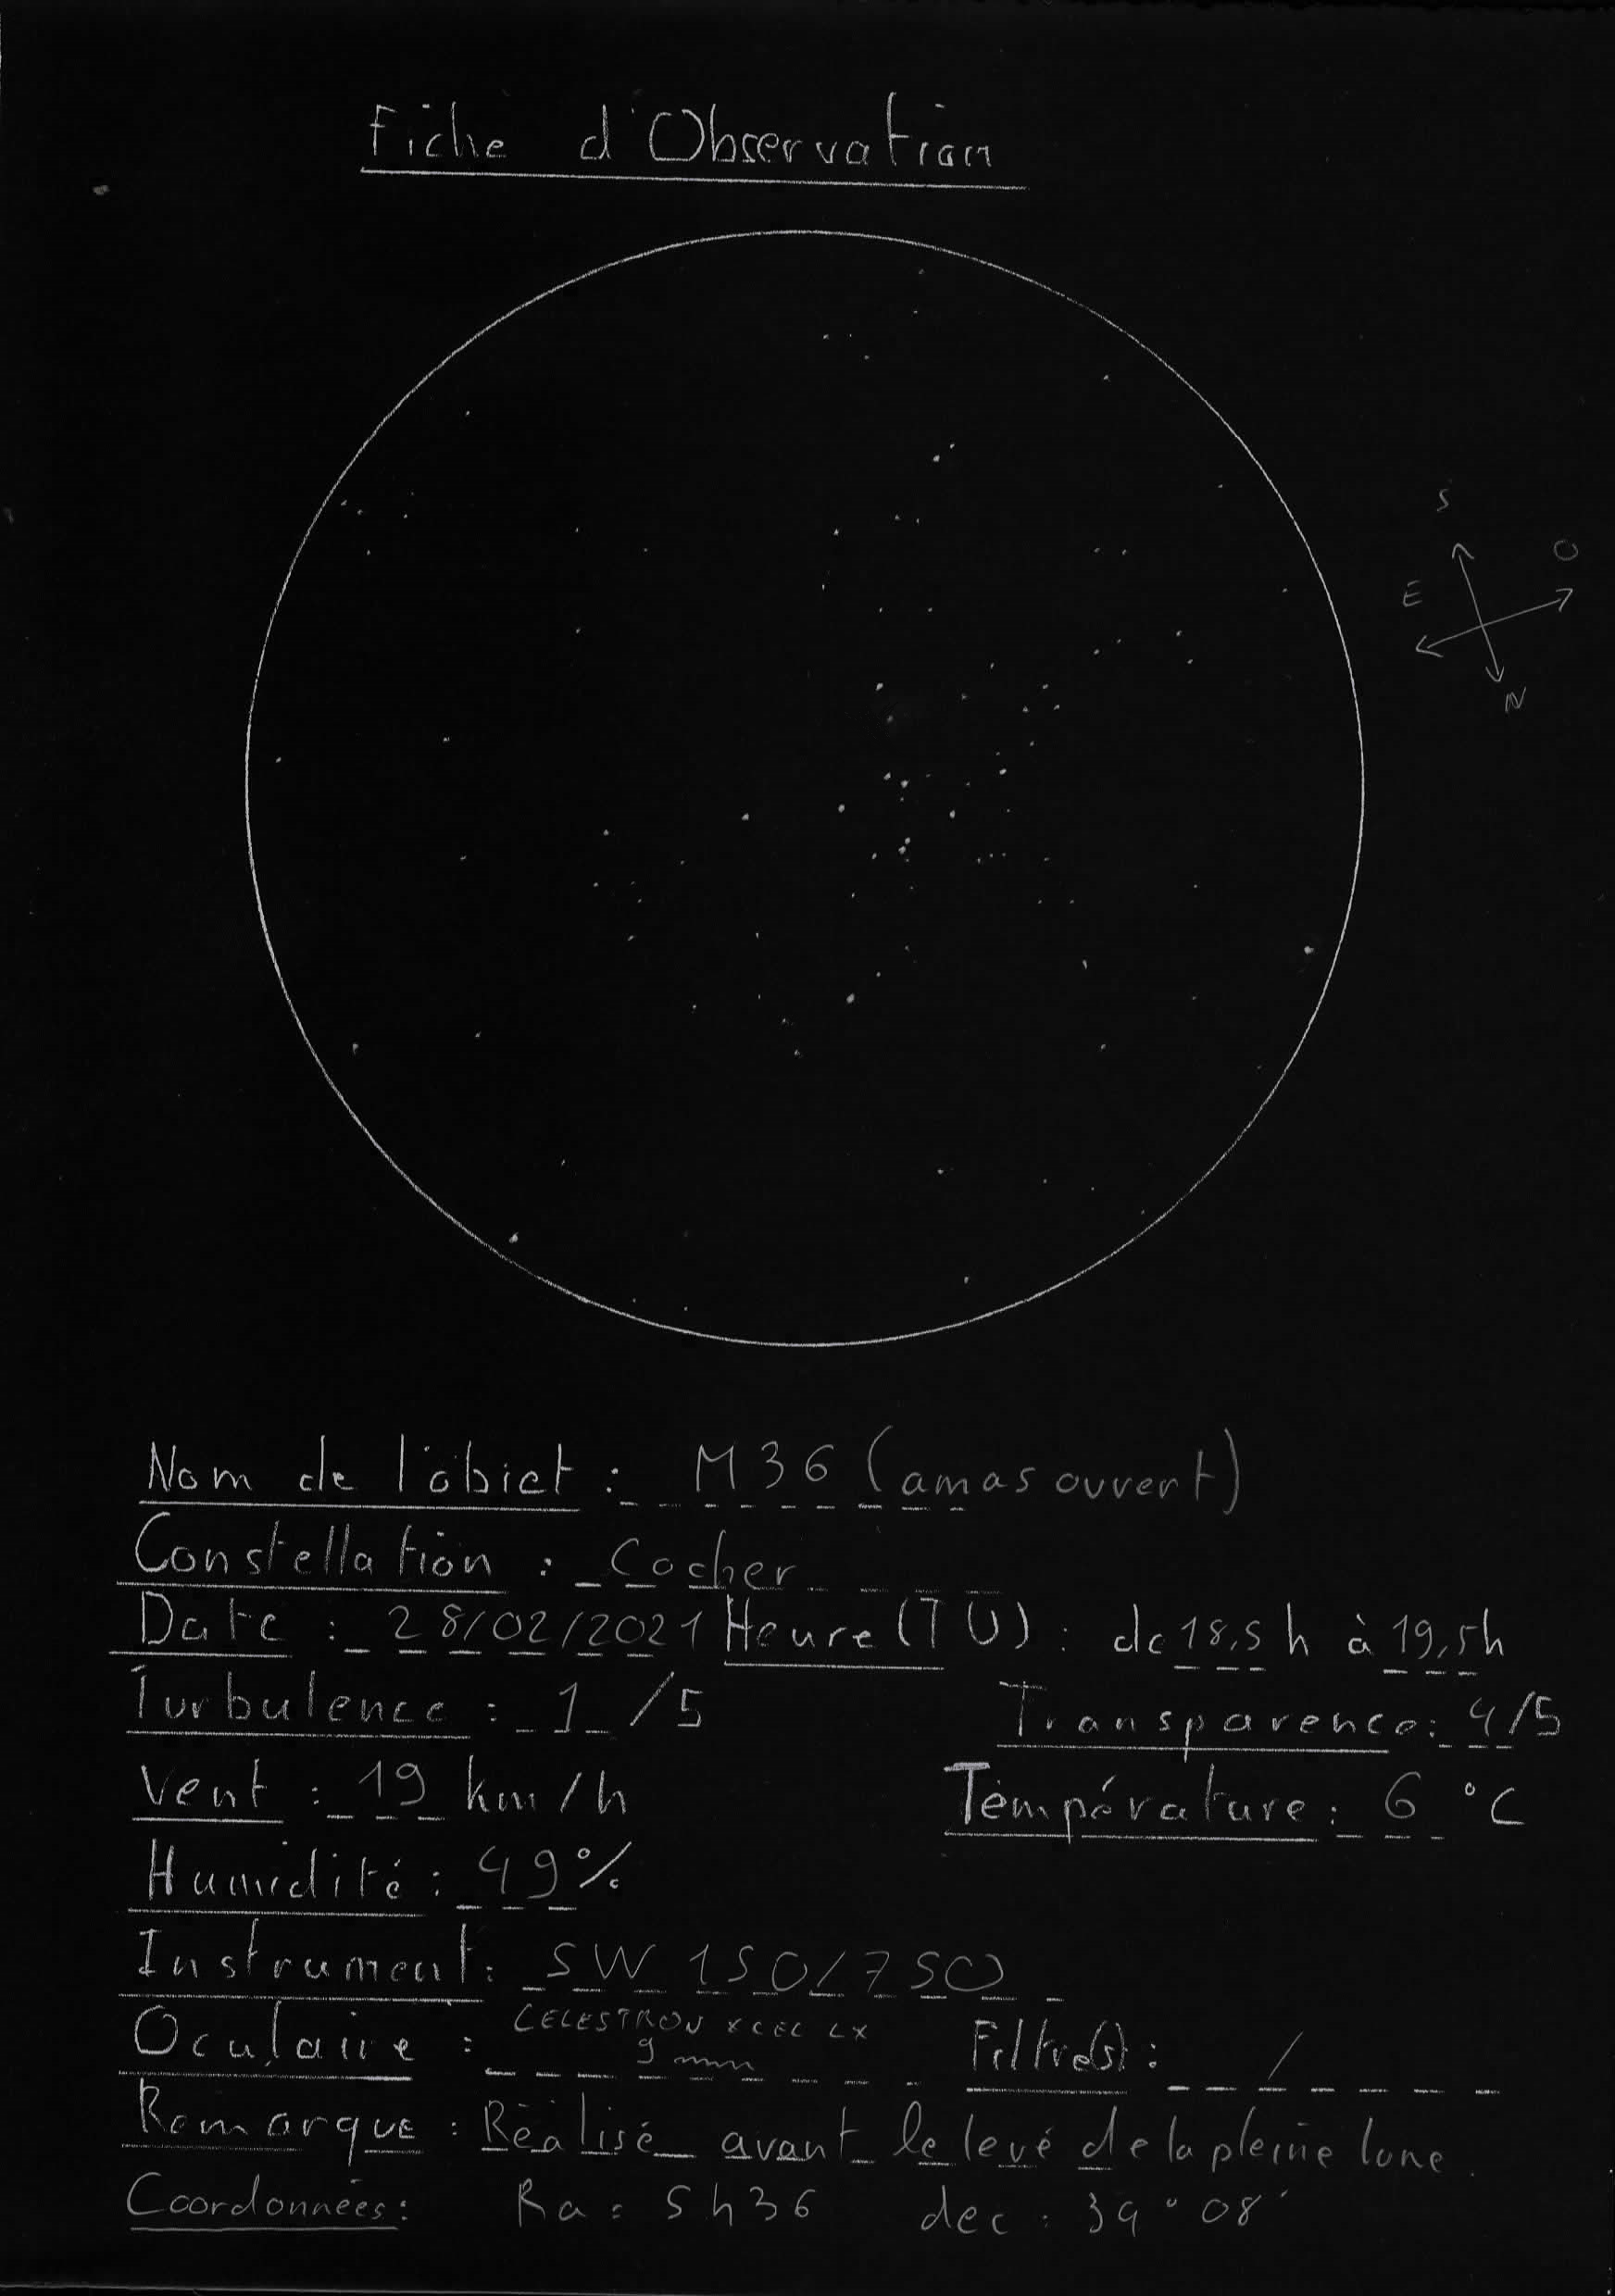 Fiche d'Observation
S
O
E
N
Nom de l'objet : M36 (amas ouvert)
Constellation : Cocher
Date : 28/02/2021 Heure (TU) : de 18,5h à 19,5h
Turbulence : 1 /5 Transparence : 4/5
Vent : 19 km/h Température : 6 °C
Humidité : 49%
Instrument : SW 150/750
Oculaire : CELESTRON XCEL LX
9 mm Filtre(s) : /
Remarque : Réalisé avant le levé de la pleine lune.
Coordonnées : Ra : 5h36 dec : 34°08'